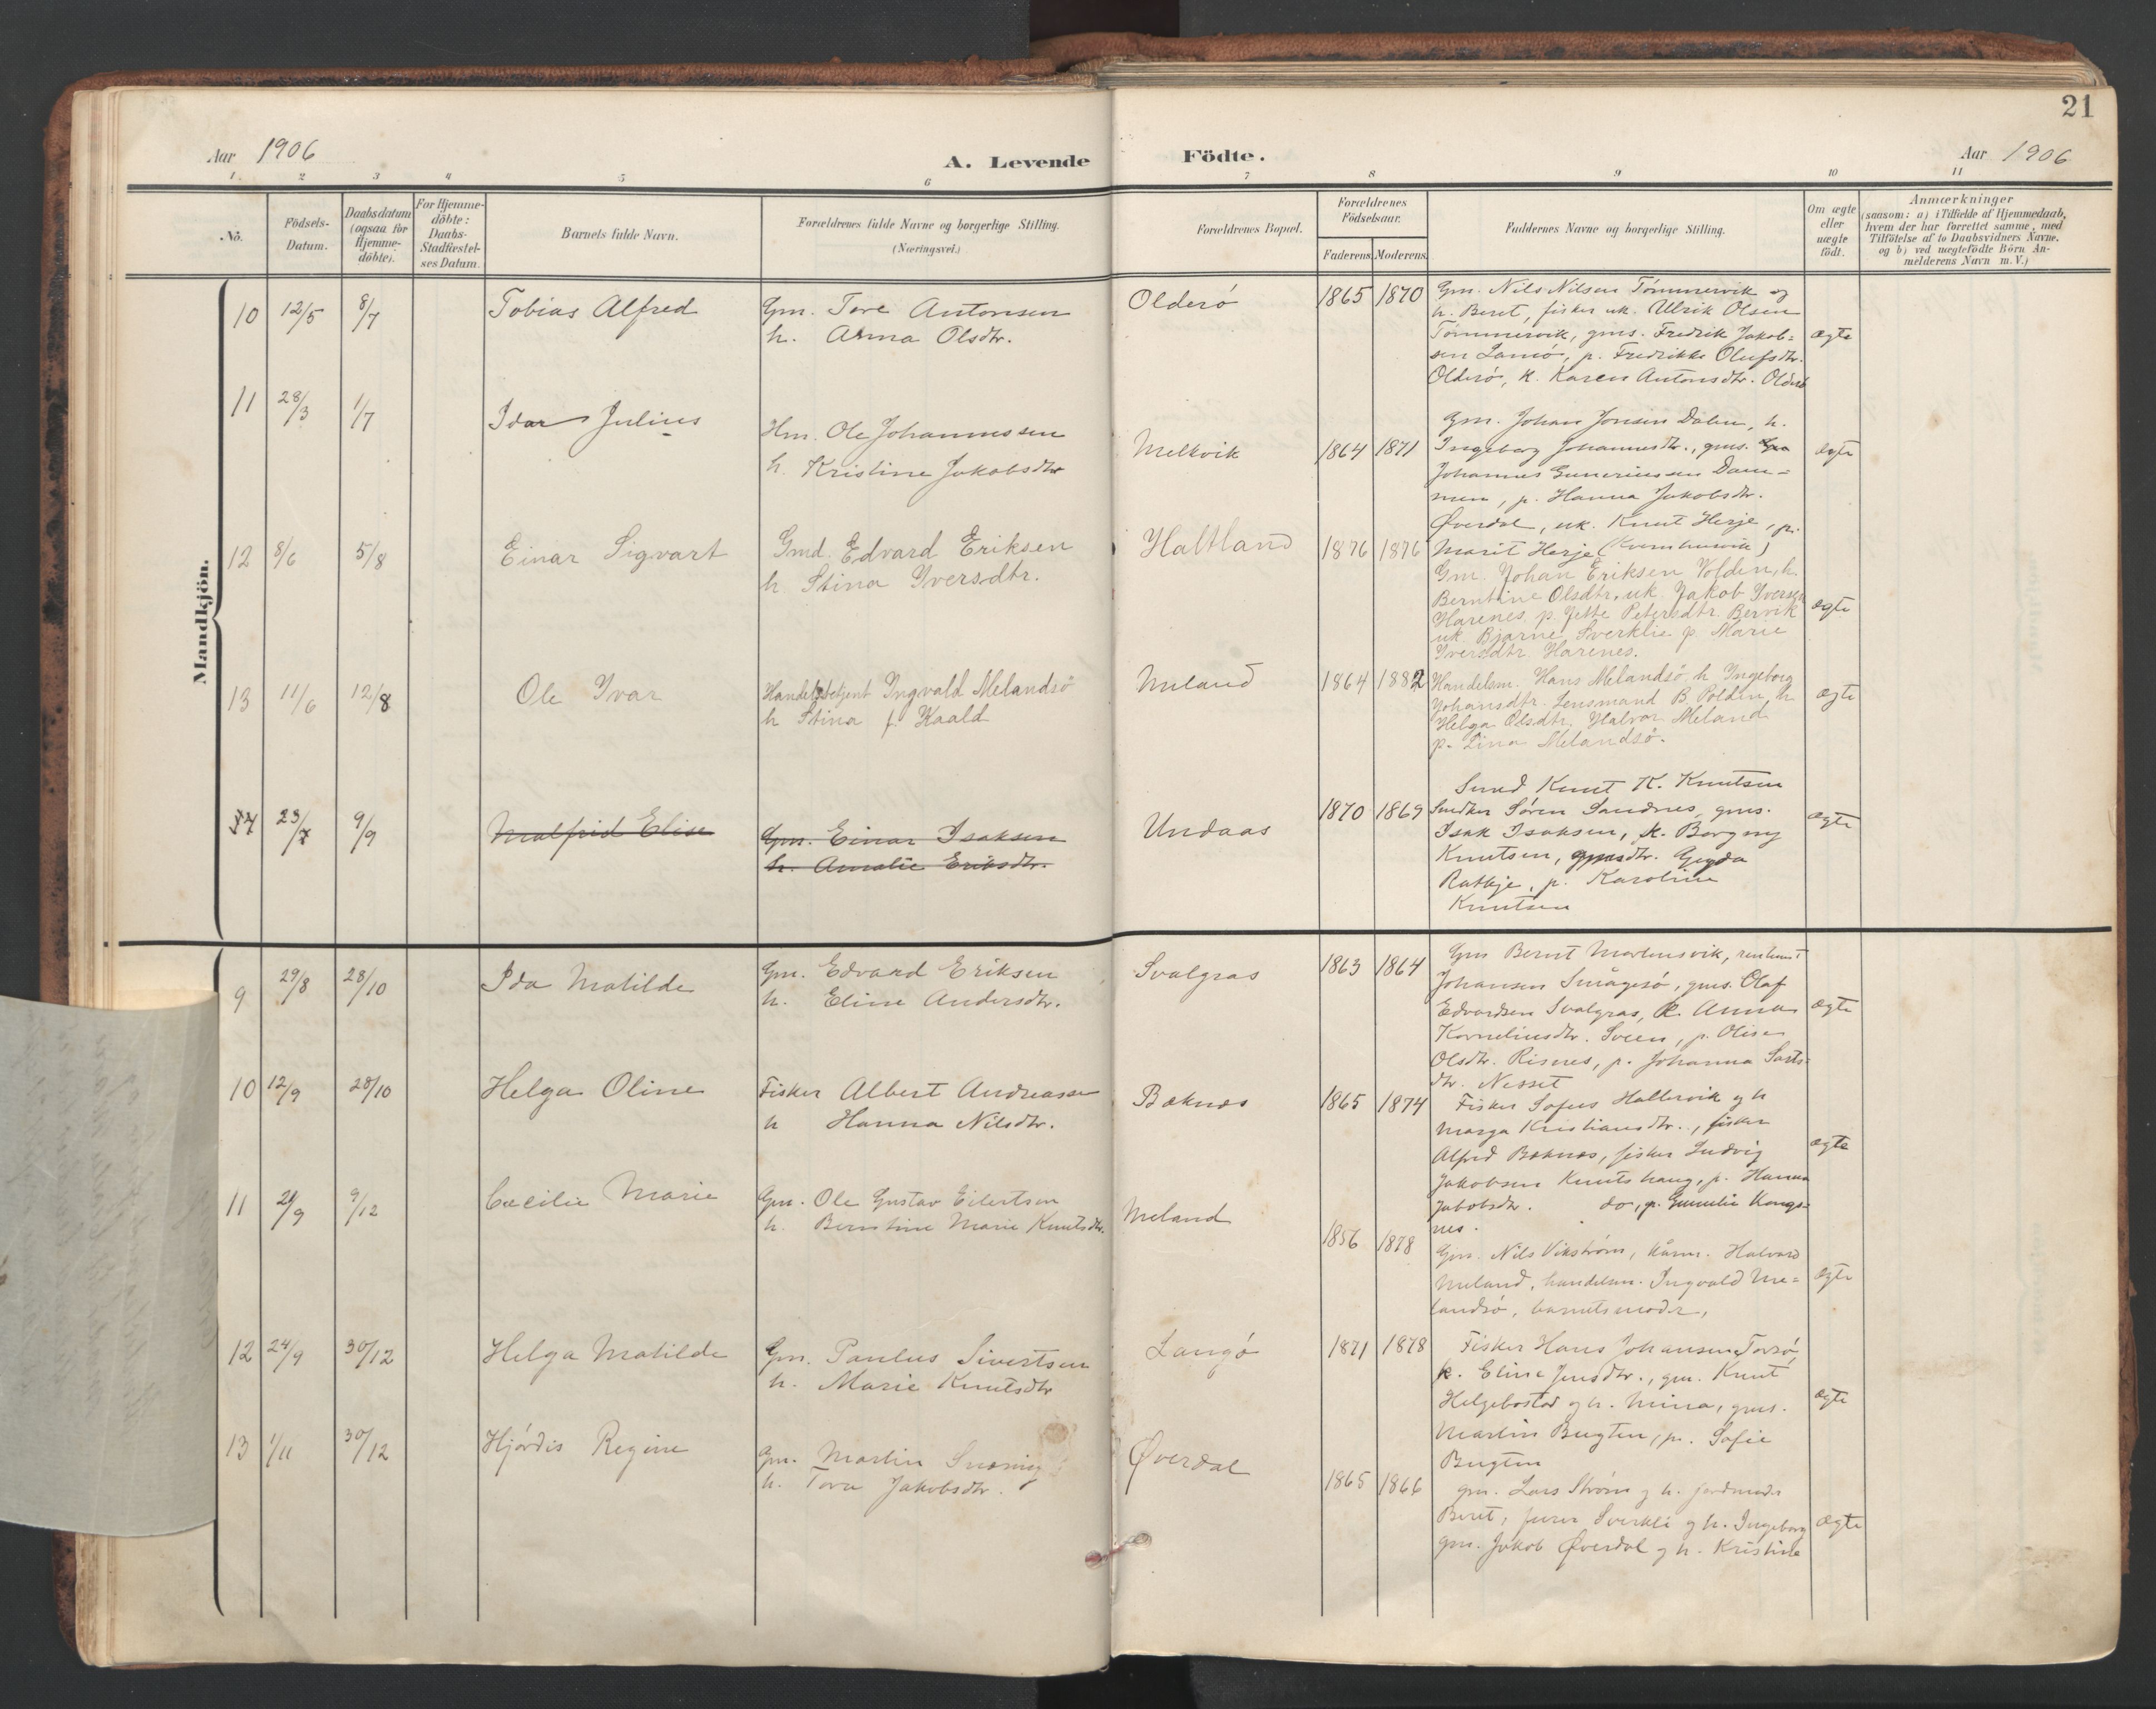 21
Aar 1906
A. Levende Födte.
Aar 1906
1 2 3 4 5 6 7 8 9 10 11
No.
Födsels-
Datum.
Daabsdatum
(ogsaa for
Hjemme-
döbte).
For Hjemme-
döbte:
Daabs-
Stadfæstel-
ses Datum.
Barnets fulde Navn.
Forældrenes fulde Navne og borgerlige Stilling.
(Næringsvei.)
Forældrenes Bopæl.
Forældrenes
Födselsaar.
Faderens. Moderens.
Faddernes Navne og borgerlige Stilling.
Om ægte
eller
uægte
födt.
Anmærkninger
(saasom: a) i Tilfælde af Hjemmedaab,
hvem der har forrettet samme, med
Tilföielse af to Daabsvidners Navne,
og b) ved uægtefödte Börn An-
melderens Navn m. V.)
Mandkjön.
10 12/5 8/7 Tobias Alfred
Gm. Tore Antonsen
h. Anna Olsdtr.
Olderö 1865 1870
Gm. Nils Nilsen Tömmervik og
h. Beret, fisker uk. Ulrik Olsen
Tömmervik, gms. Fredrik Jakob-
sen Lamö, p. Fredrikke Olufsdtr.
Olderö, k. Karen Antonsdtr. Olderö
ægte
11 28/3 1/7 Idar Julius
Hm. Ole Johannessen
h. Kristine Jakobsdtr
Melkvik 1864 1871
Gm. Johan Jonsen Dalen, h.
Ingeborg Johannesdtr., gms.
Johannes Guneriussen Dam-
men, p. Hanna Jakobsdtr.
Øverdal, uk. Knut Herje, p.
Marit Herje (Kvernhusvik)
ægte
12 8/6 5/8 Einar Sigvart
Gmd. Edvard Eriksen
h. Stina Iversdtr.
Haltland 1876 1876
Gm. Johan Eriksen Volden, h.
Berntine Olsdtr, uk Jakob Iversen
Harenes, p. Jette Petersdtr. Bervik
uk Bjarne Sverklie p. Marie
Iversdtr Harenes.
ægte
13 11/6 12/8 Ole Ivar
Handelsbetjent Ingvald Melandsö
h Stina f. Kaald
Meland 1864 1882
Handelsm. Hans Melandsö, h Ingeborg
Johansdtr. Lensmand B. Polden, h
Helga Olsdtr. Halvor Meland
p. Lina Melandsö.
ægte
14 23/7 9/9 Malfrid Elise
Gm. Einar Isaksen
h. Amalie Eriksdtr.
Undaas 1870 1869
Smed Knut K. Knutsen
Snedker Sören Sandnes, gms.
Isak Isaksen, k. Borgny
Knutsen, gmsdtr. Gyda
Ratkje, p. Karoline
Knutsen
ægte
9 29/8 28/10 Ida Matilde
Gm. Edvard Eriksen
h. Eline Andersdtr.
Svalgras 1863 1864
Gm Bernt Mortensvik,
Johansen Smågesö, gms. Olaf
Edvardsen Svalgras, k. Anna
Korneliusdtr. Sveen, p. Olise
Olsdtr. Risnes, p. Johanna Larts-
dtr. Nesset
ægte
10 12/9 28/10 Helga Oline
Fisker Albert Andreassen
h Hanna Nilsdtr.
Baknes 1865 1874
Fisker Sofus Hallervik og h
Marga Kristiansdtr., fisker
Alfred Baknes, fisker Ludvig
Jakobsen Knutshaug, p. Hanna
Jakobsdtr. do, p. Gunelie Kongs-
nes.
ægte
11 21/9 9/12 Cecilie Marie
Gm. Ole Gustav Eilertsen
h. Berntine Marie Knutsdtr.
Meland 1856 1878
Gm. Nils Vikström, kårm. Halvard
Meland, handelsm. Ingvald Me-
landsö, barnets moder,
ægte
12 24/9 30/12 Helga Matilde
Gm. Paulus Sivertsen
h. Marie Knutsdtr
Langö 1871 1878
Fisker Hans Johansen Torsö,
k. Eline Jensdtr., gm. Knut
Helgebostad og h. Mina, gms.
Martin Bugten, p. Sofie
Bugten
ægte
13 1/11 30/12 Hjördis Regine
Gm. Martin
h. Tora Jakobsdtr.
Øverdal 1865 1866
gm. Lars Ström og h. jordmoder
Beret, furer Sverkli og h. Ingeborg
gm. Jakob Øverdal og h. Kristine
ægte